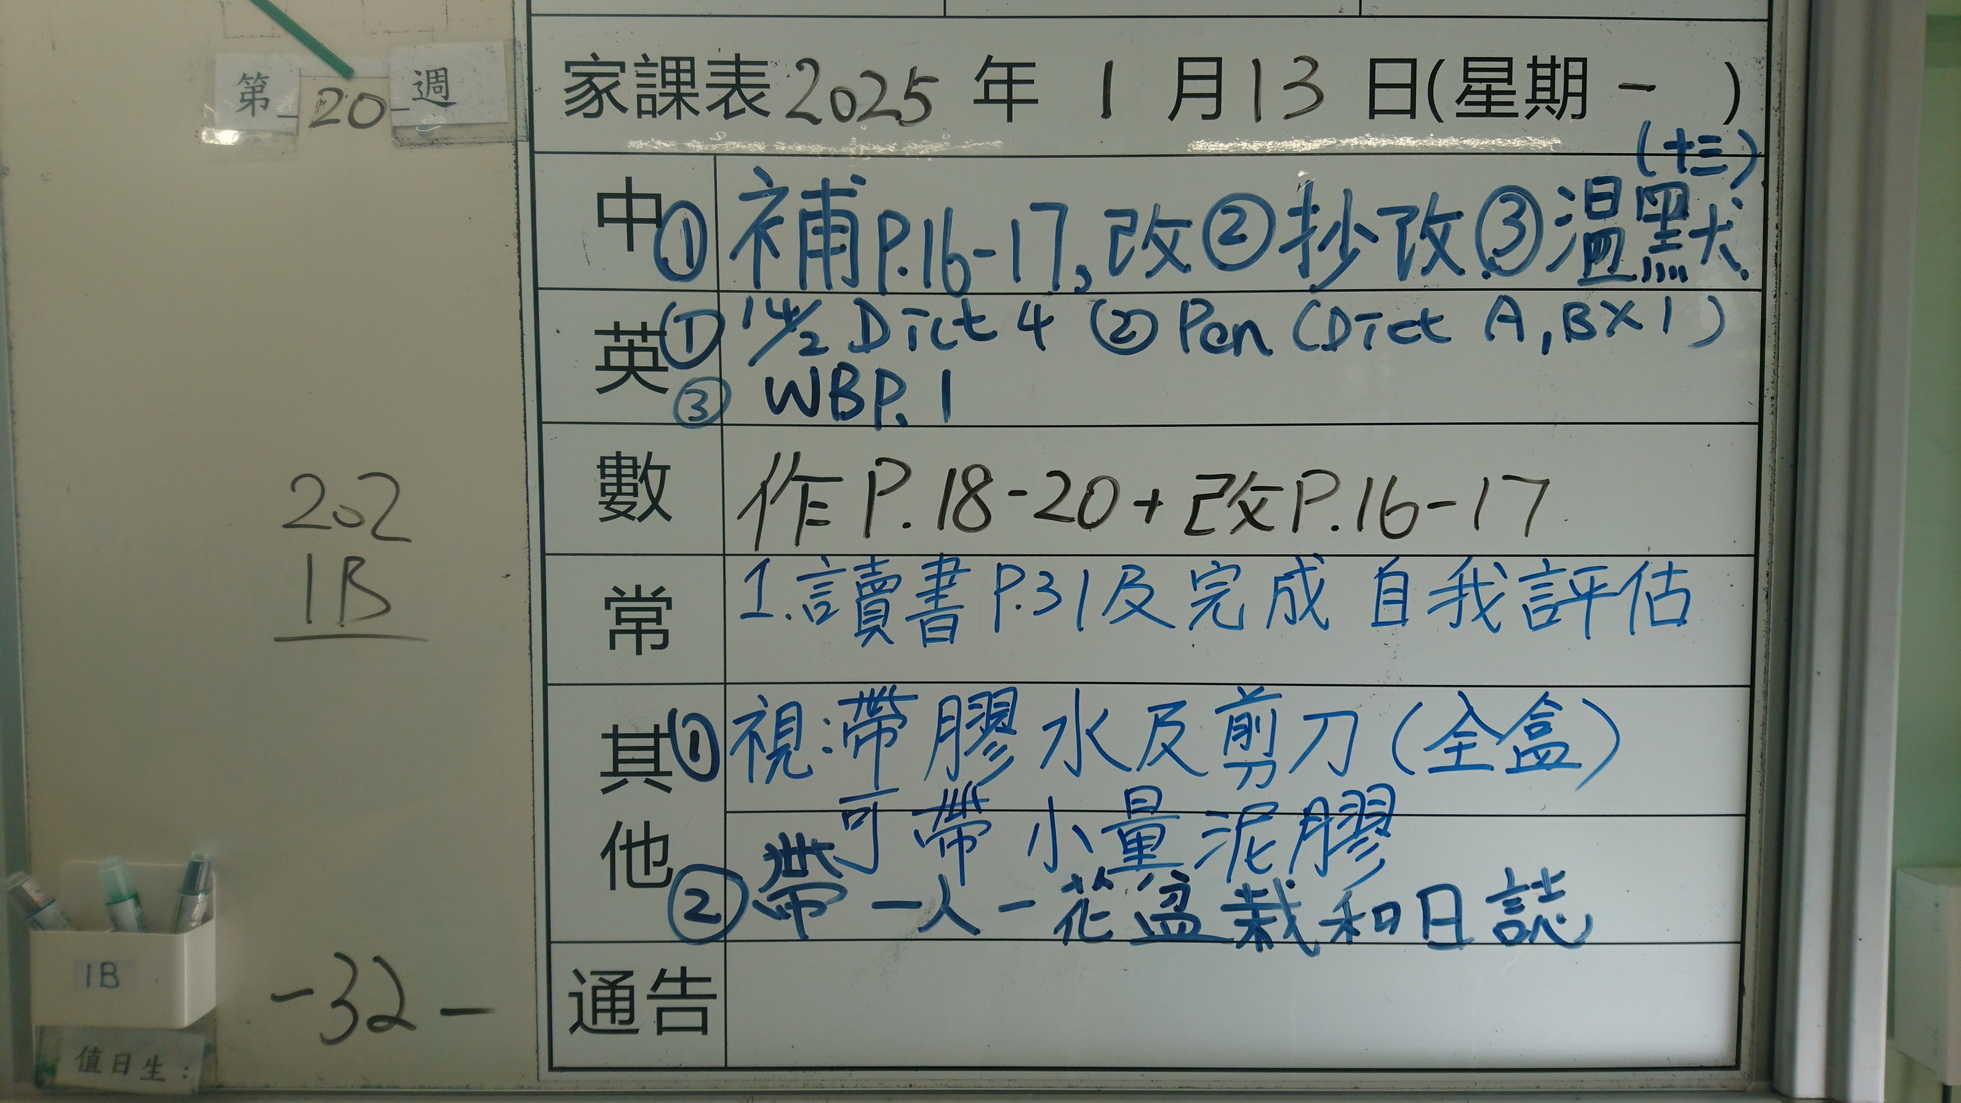 第 20 週
家課表 2025 年 1 月 13 日(星期 一 )
(十三)
中 ①補P.16-17,改②抄改③溫默
英 ① 14/2 Dict 4 ② Pen (Dict A,B×1)
③ WBP.1
數 作P.18-20+改P.16-17
202
1B
常 1.讀書P.31及完成自我評估
其他 ①視:帶膠水及剪刀(全盒)
可帶小量泥膠
②帶一人一花盆栽和日誌
1B
-32-
通告
值日生: